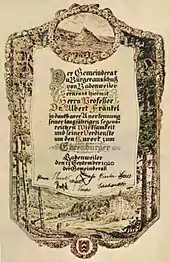 Der Gemeinderat
u. Bürgerausschuß
von Badenweiler
ernennt hiermit
Herrn Professor
Dr. Albert Fränkel
in dankbarer Anerkennung
seiner langjährigen segens-
reichen Wirksamkeit
und seiner Verdienste
um den Kurort zum
Ehrenbürger
Badenweiler
den 11. September 1920
der Gemeinderat